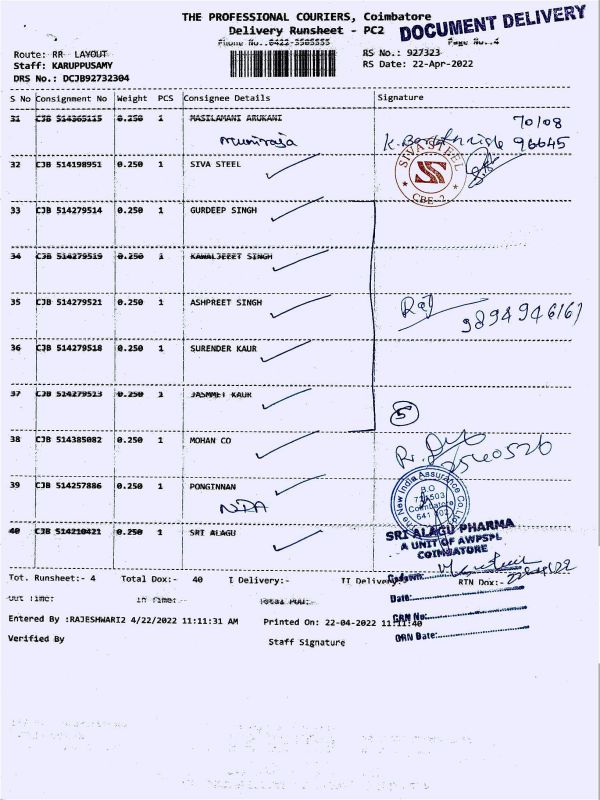 THE PROFESSIONAL COURIERS, Coimbatore
DOCUMENT DELIVERY
Delivery Runsheet - PC2
Phone No.:0422-3565555
Page No.:4
Route: RR- LAYOUT
RS No.: 927323
Staff: KARUPPUSAMY
RS Date: 22-Apr-2022
DRS No.: DCJB92732304
S No Consignment No Weight PCS Consignee Details Signature
31 CJB 514365115 0.250 1 MASILAMANI ARUKANI
70108
muniraja
96645
32 CJB 514198951 0.250 1 SIVA STEEL
SIVA STEEL
SS
CBE-2
33 CJB 514279514 0.250 1 GURDEEP SINGH
34 CJB 514279519 0.250 1 KAWALJEEET SINGH
35 CJB 514279521 0.250 1 ASHPREET SINGH
Raj
9894946161
36 CJB 514279518 0.250 1 SURENDER KAUR
37 CJB 514279513 0.250 1 JASMMET KAUR
5
38 CJB 514385082 0.250 1 MOHAN CO
39 CJB 514257886 0.250 1 PONGINNAN
NDA
The New India Assurance Co. Ltd.
B.O
Coimbatore
40 CJB 514210421 0.250 1 SRI ALAGU
SRI ALAGU PHARMA
A UNIT OF AWPSPL
COIMBATORE
Tot. Runsheet:- 4 Total Dox:- 40 I Delivery:- II Delivery:- RTN Dox:-
Out Time: In Time: Total POD:-
Date:
Entered By :RAJESHWARI2 4/22/2022 11:11:31 AM Printed On: 22-04-2022 11:11:40
GRN No:
Verified By Staff Signature
GRN Date: